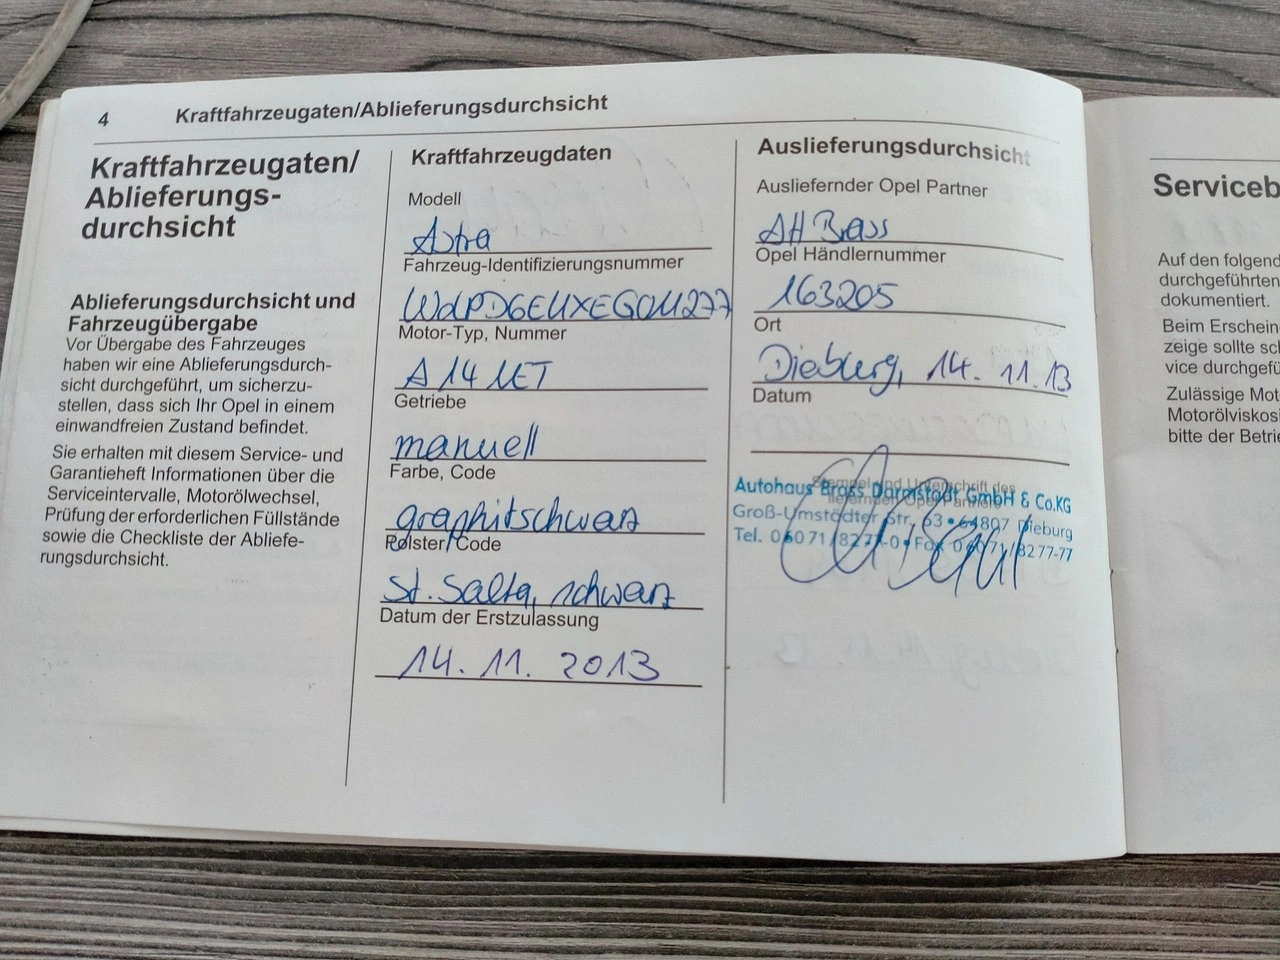 4 Kraftfahrzeugaten/Ablieferungsdurchsicht
Kraftfahrzeugaten/
Ablieferungs-
durchsicht
Ablieferungsdurchsicht und
Fahrzeugübergabe
Vor Übergabe des Fahrzeuges
haben wir eine Ablieferungsdurch-
sicht durchgeführt, um sicherzu-
stellen, dass sich Ihr Opel in einem
einwandfreien Zustand befindet.
Sie erhalten mit diesem Service- und
Garantieheft Informationen über die
Serviceintervalle, Motorölwechsel,
Prüfung der erforderlichen Füllstände
sowie die Checkliste der Abliefe-
rungsdurchsicht.
Kraftfahrzeugdaten
Modell
Astra
Fahrzeug-Identifizierungsnummer
Motor-Typ, Nummer
A 14 NET
Getriebe
manuell
Farbe, Code
graphitschwarz
Polster/Code
St. Salta, schwarz
Datum der Erstzulassung
14. 11. 2013
Auslieferungsdurchsicht
Ausliefernder Opel Partner
AH Brass
Opel Händlernummer
163205
Ort
Dieburg, 14. 11. 13
Datum
Stempel und Unterschrift des
Autohaus Brass Darmstadt GmbH & Co.KG
Groß-Umstädter Str. 63 • 64807 Dieburg
Tel. 06071/8277-0 • Fax 06071/8277-77
Serviceb
Auf den folgend
durchgeführten
dokumentiert.
Beim Erschein
zeige sollte sc
vice durchgefü
Zulässige Mot
Motorölviskos
bitte der Betrie